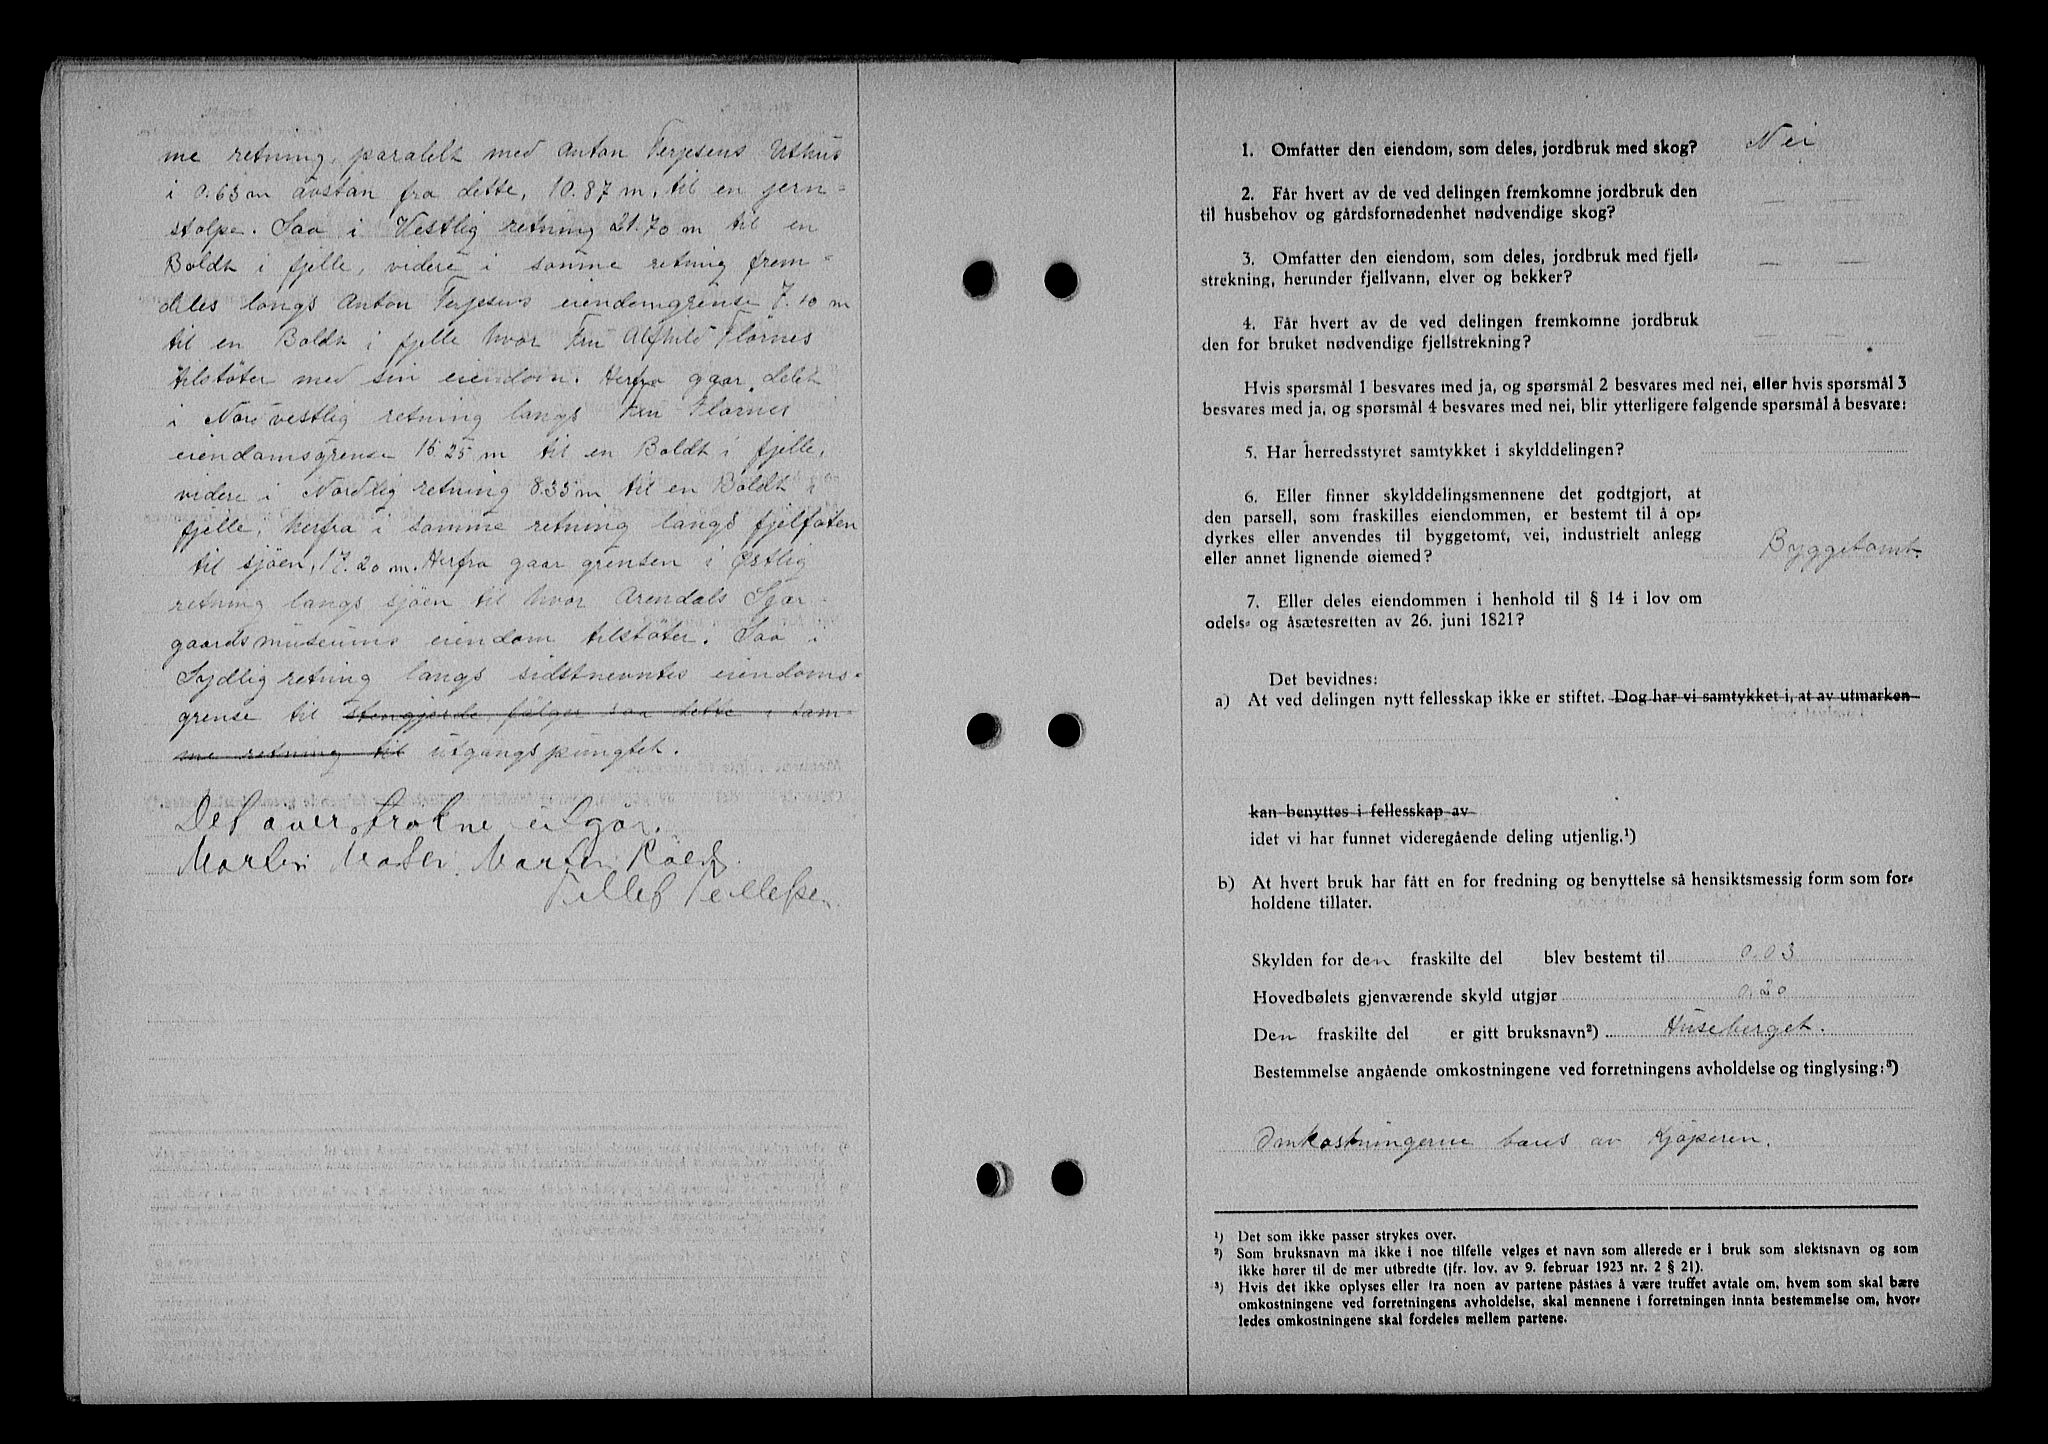 me retning, paralelt med Anton Terjesens Uthus
i 0.63 m avstan fra dette, 10.87 m, til en jern=
stolpe. Saa i Vestlig retning 21.70 m til en
Boldt i fjelle, videre i samme retning frem=
deles langs Anton Terjesens eiendomgrense 7.10 m
til en Boldt i fjelle hvor Fru Alfhild Flørnes
tilstöter med sin eiendom. Herfra gaar delet
i Nordvestlig retning langs Fru Flörnes
eiendomsgrense 16 25 m til en Boldt i fjelle,
videre i Nordlig retning 8.35 m til en Boldt i
fjelle, herfra i samme retning langs fjelfoten
til sjöen, 17.20 m. Herfra gaar grensen i Østlig
retning langs sjöen til hvor Arendals Sjør-
gaardsmuseums eiendom tilstöter. Saa i
Sydlig retning langs sidstnevntes eiendoms=
grense til stengjerde følger saa dette i sam=
me retning til utgangspungtet.
Det överströkne utgår.
Martin Moten. Martin
Tellef Tellefsen
1. Omfatter den eiendom, som deles, jordbruk med skog? Nei
2. Får hvert av de ved delingen fremkomne jordbruk den
til husbehov og gårdsfornødenhet nødvendige skog? — —
3. Omfatter den eiendom, som deles, jordbruk med fjell-
strekning, herunder fjellvann, elver og bekker? — —
4. Får hvert av de ved delingen fremkomne jordbruk
den for bruket nødvendige fjellstrekning? — —
Hvis spørsmål 1 besvares med ja, og spørsmål 2 besvares med nei, eller hvis spørsmål 3
besvares med ja, og spørsmål 4 besvares med nei, blir ytterligere følgende spørsmål å besvare:
5. Har herredsstyret samtykket i skylddelingen?
6. Eller finner skylddelingsmennene det godtgjort, at
den parsell, som fraskilles eiendommen, er bestemt til å op-
dyrkes eller anvendes til byggetomt, vei, industrielt anlegg
eller annet lignende øiemed? Byggetomt.
7. Eller deles eiendommen i henhold til § 14 i lov om
odels- og åsætesretten av 26. juni 1821?
Det bevidnes:
a) At ved delingen nytt fellesskap ikke er stiftet. Dog har vi samtykket i, at av utmarken
kan benyttes i fellesskap av
idet vi har funnet videregående deling utjenlig.¹)
b) At hvert bruk har fått en for fredning og benyttelse så hensiktsmessig form som for-
holdene tillater.
Skylden for den fraskilte del blev bestemt til 0.03
Hovedbølets gjenværende skyld utgjør 0.20
Den fraskilte del er gitt bruksnavn²) Huseberget.
Bestemmelse angående omkostningene ved forretningens avholdelse og tinglysing:³)
Omkostningerne bæres av Kjöperen.
¹) Det som ikke passer strykes over.
²) Som bruksnavn må ikke i noe tilfelle velges et navn som allerede er i bruk som slektsnavn og som
ikke hører til de mer utbredte (jfr. lov. av 9. februar 1923 nr. 2 § 21).
³) Hvis det ikke oplyses eller fra noen av partene påståes å være truffet avtale om, hvem som skal bære
omkostningene ved forretningens avholdelse, skal mennene i forretningen innta bestemmelse om, hvor-
ledes omkostningene skal fordeles mellem partene.